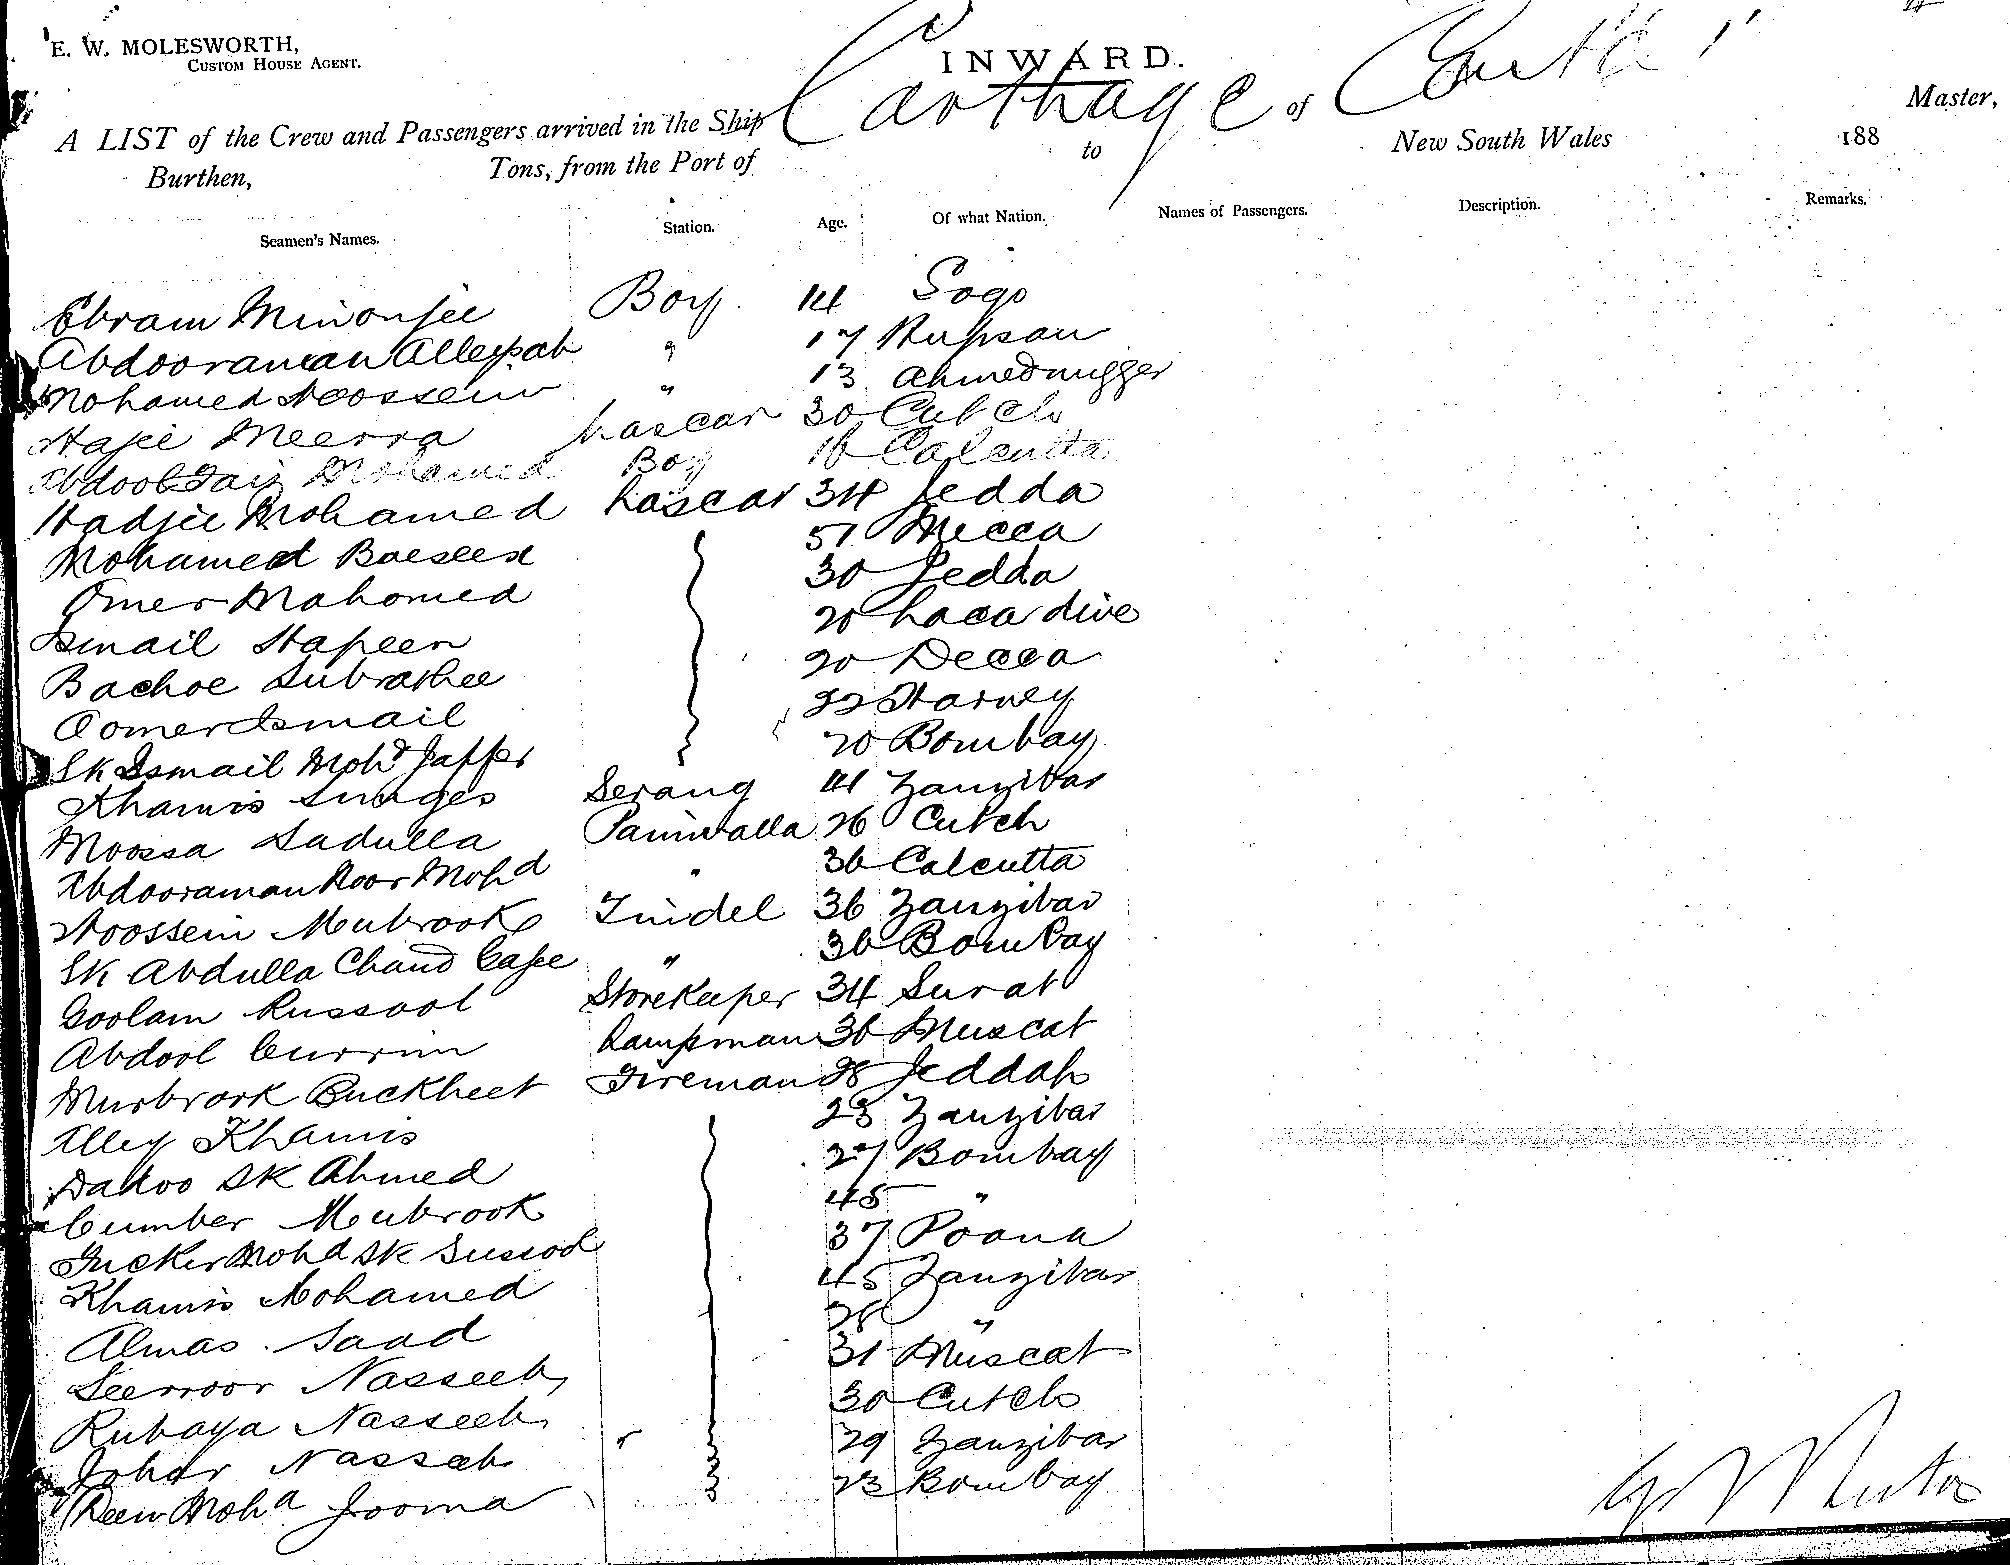 E. W. MOLESWORTH,
CUSTOM HOUSE AGENT.
INWARD.
A LIST of the Crew and Passengers arrived in the Ship Carthage of Master,
Burthen, Tons, from the Port of to New South Wales 188
Seamen's Names. Station. Age. Of what Nation. Names of Passengers. Description. Remarks.
Ebram Boy 14 Gogo
Abdooraman " 17
Mohamed Hoossein " 13 Ahmednugger
Hajee Meerra Lascar 30 Cutch
Abdool Mohamed Boy 16 Calcutta
Hadjee Mohamed Lascar 34 Jedda
Mohamed 51 Mecca
Omer Mahomed 30 Jedda
Ismail 20 Laccadive
Bachoe 20 Decca
Oomer Ismail 22 Harney
Sk Ismail Mohd Jaffer 20 Bombay
Khamis Serang 41 Zanzibar
Moossa Sadulla Paniwalla 26 Cutch
Abdooraman Noor Mohd " 36 Calcutta
Hoossein Mubrook Tindel 36 Zanzibar
Sk Abdulla Chand " 36 Bombay
Goolam Russool Storekeeper 34 Surat
Abdool Currim Lampsman 36 Muscat
Murbrook Buckheet Fireman 28 Jeddah
Alley Khamis 23 Zanzibar
Dadoo Sk Ahmed 27 Bombay
Cumber Mubrook 45 "
Mohd Sk 37 Poona
Khamis Mohamed 45 Zanzibar
Almas Saad 28 "
Seerroor Nasseeb 31 Muscat
Rubaya Nasseeb 30 Cutch
Johar Nasseeb " 29 Zanzibar
Mohd Jooma 23 Bombay